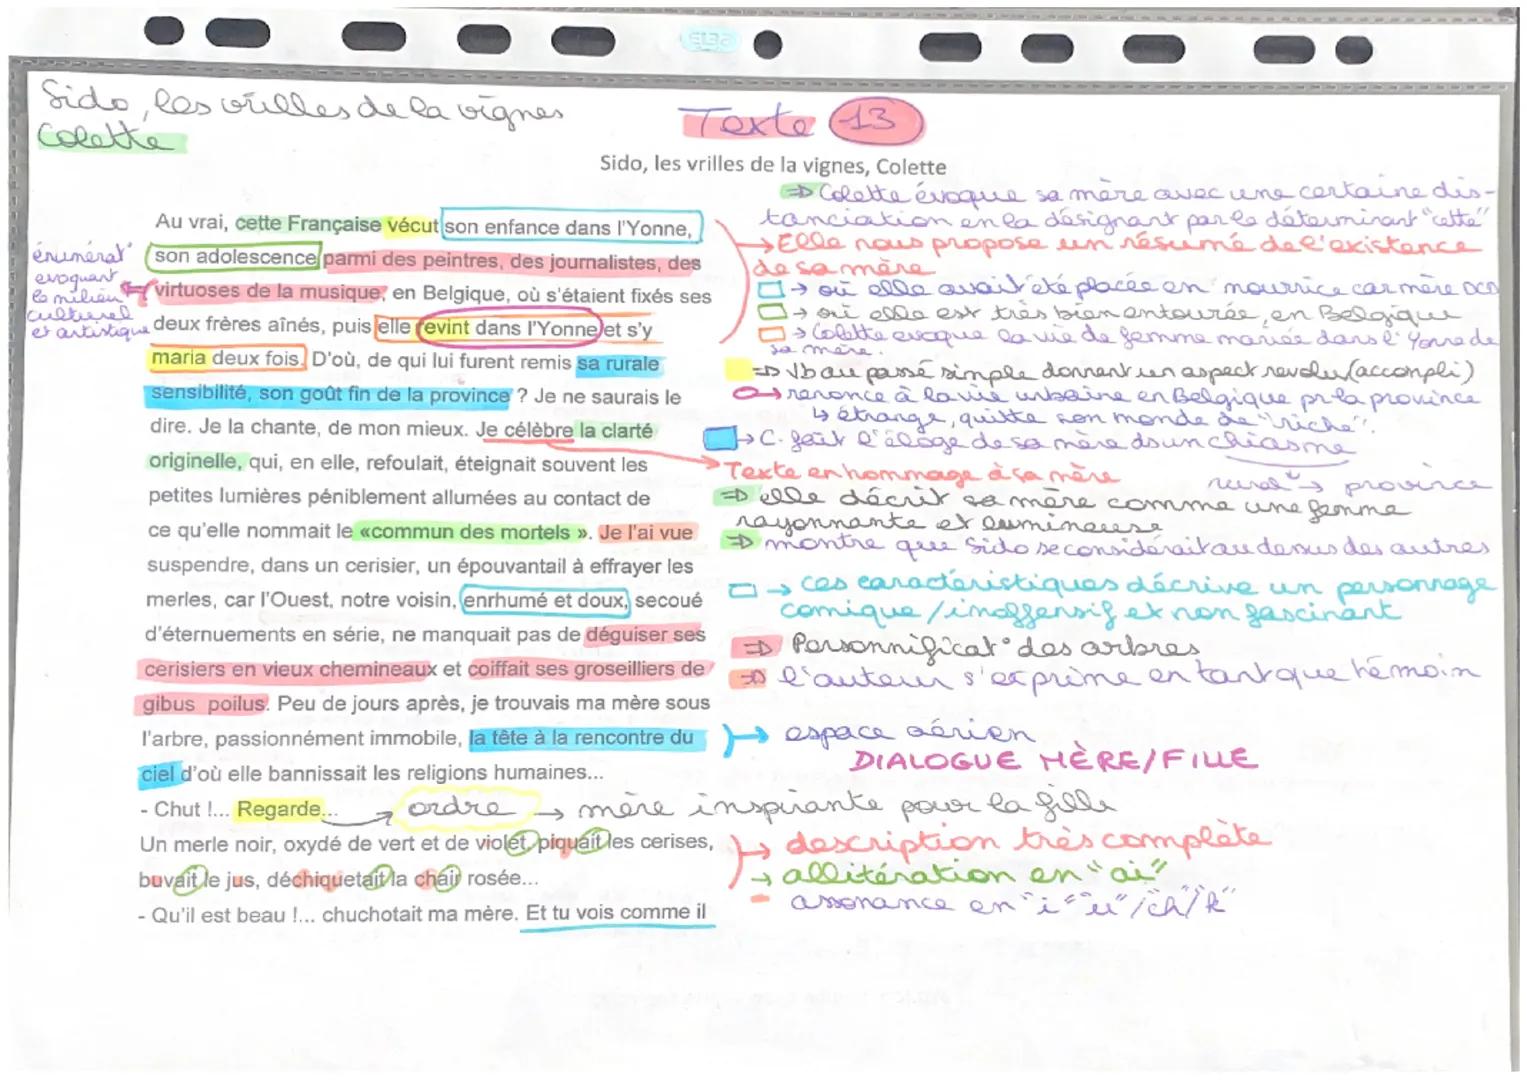 Sido, les vrilles de la vignes
Colette
Texte 13
Sido, les vrilles de la vignes, Colette
Au vrai, cette Française vécut son enfance dans l'Yonne,
son adolescence parmi des peintres, des journalistes, des
virtuoses de la musique, en Belgique, où s'étaient fixés ses
deux frères aînés, puis elle revint dans l'Yonne et s'y
maria deux fois. D'où, de qui lui furent remis sa rurale
sensibilité, son goût fin de la province ? Je ne saurais le
dire. Je la chante, de mon mieux. Je célèbre la clarté
originelle, qui, en elle, refoulait, éteignait souvent les
petites lumières péniblement allumées au contact de
ce qu'elle nommait le «commun des mortels ». Je l'ai vue
suspendre, dans un cerisier, un épouvantail à effrayer les
merles, car l'Ouest, notre voisin, enrhumé et doux, secoué
d'éternuements en série, ne manquait pas de déguiser ses
cerisiers en vieux chemineaux et coiffait ses groseilliers de
gibus poilus. Peu de jours après, je trouvais ma mère sous
l'arbre, passionnément immobile, la tête à la rencontre du
ciel d'où elle bannissait les religions humaines...
- Chut !... Regarde...
Un merle noir, oxydé de vert et de violet, piquait les cerises,
buvait le jus, déchiquetait la chair rosée...
- Qu'il est beau !... chuchotait ma mère. Et tu vois comme il
énumérat°
evoquant
le milieu
culturel
et artistique
⇒ Colette évoque sa mère avec une certaine dis-
tanciation en la désignant par le déterminant "cette"
→ Elle nous propose un résumé de l'existence
de sa mère
→ où elle avait été placée en nourrice car mère
→ où elle est très bien entourée, en Belgique
→ Colette evoque la vie de femme mariée dans l'Yonne de
sa mère.
⇒ Vb au passé simple donnent un aspect revolu (accompli)
→ renonce à la vie urbaine en Belgique pr la province
↳ étrange, quitte son monde de "riche".
→ C. fait l'éloge de sa mère ds un chiasme
rural → province
→ Texte en hommage à sa mère
⇒ elle décrit sa mère comme une femme
rayonnante et lumineuse
⇒ montre que Sido se considérait au dessus des autres
→ ces caractéristiques décrive un personnage
comique / inoffensif et non fascinant
⇒ Personnificat° des arbres
⇒ l'auteur s'exprime en tant que témoin
→ espace aérien
DIALOGUE MÈRE/FILLE
→ ordre → mère inspirante pour la fille
→ description très complète
→ allitération en "ai"
assonance en "i" "u"/"ch"/"k"